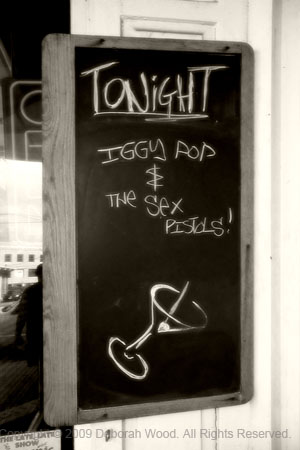 TONIGHT
IGGY POP
&
THE SEX
PISTOLS!
THE LATE, LATE
SHOW
Copyright © 2009 Deborah Wood. All Rights Reserved.